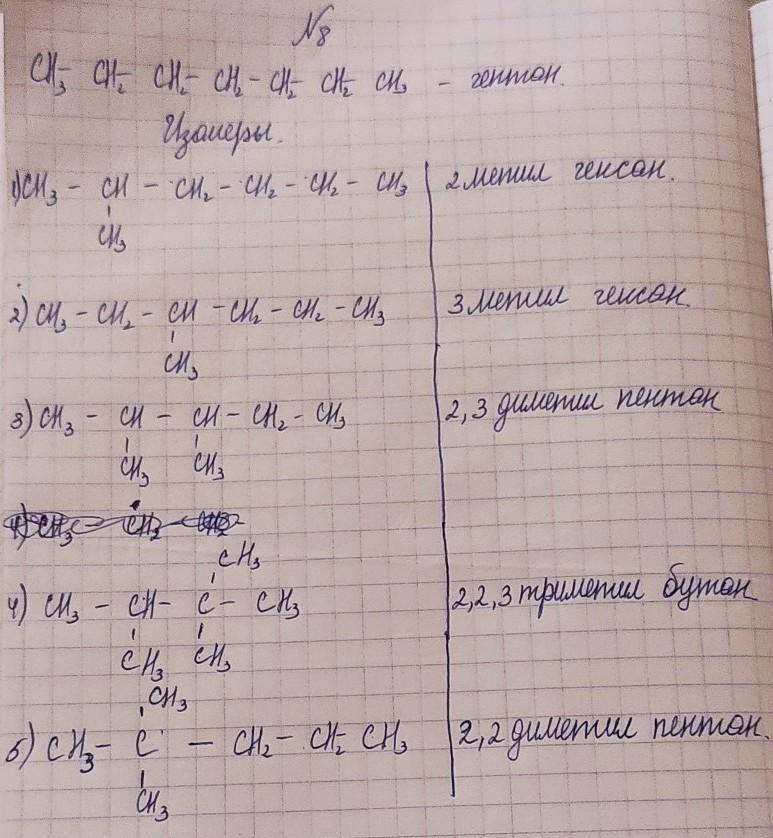 №8
CH3 - CH2 - CH2 - CH2 - CH2 - CH2 CH3 - гептан.
Изомеры.
1) CH3 - CH - CH2 - CH2 - CH2 - CH3 2 метил гексан.
CH3
2) CH3 - CH2 - CH - CH2 - CH2 - CH3 3 метил гексан.
CH3
3) CH3 - CH - CH - CH2 - CH3 2,3 диметил пентан
CH3 CH3
CH3
4) CH3 - CH - C - CH3 2,2,3 триметил бутан
CH3 CH3
CH3
5) CH3 - C - CH2 - CH2 CH3 2,2 диметил пентан.
CH3